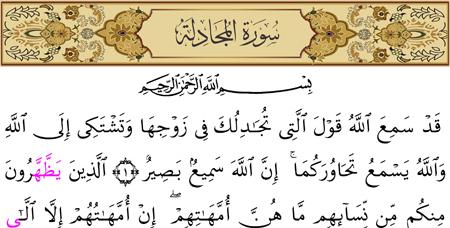 سُورَةُ المُجَادِلَةِ
بِسْمِ اللَّهِ الرَّحْمَٰنِ الرَّحِيمِ
قَدْ سَمِعَ اللَّهُ قَوْلَ الَّتِى تُجَـٰدِلُكَ فِى زَوْجِهَا وَتَشْتَكِى إِلَى اللَّهِ
وَاللَّهُ يَسْمَعُ تَحَاوُرَكُمَا ۚ إِنَّ اللَّهَ سَمِيعٌۢ بَصِيرٌ ﴿١﴾ الَّذِينَ يَظَّهَّرُونَ
مِنكُم مِّن نِّسَآئِهِم مَّا هُنَّ أُمَّهَـٰتِهِمْ ۖ إِنْ أُمَّهَـٰتُهُمْ إِلَّا الَّـٰٓى